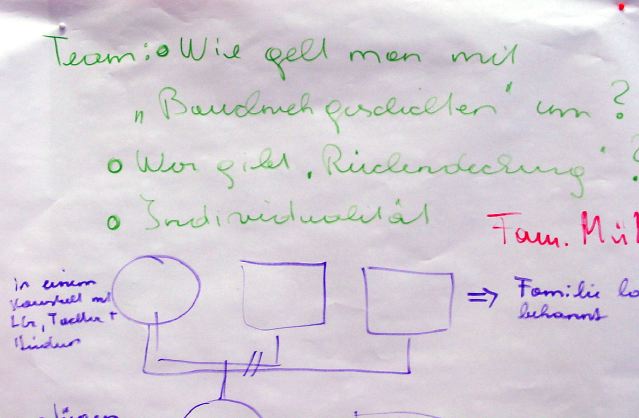 Team: • Wie geht man mit
„Bauchwehgeschichten" um?
• Wer gibt „Rückendeckung"?
• Individualität
Fam. Mül
in einem
Haushalt mit
LG, Tochter +
Kindern
⇒ Familie
bekannt